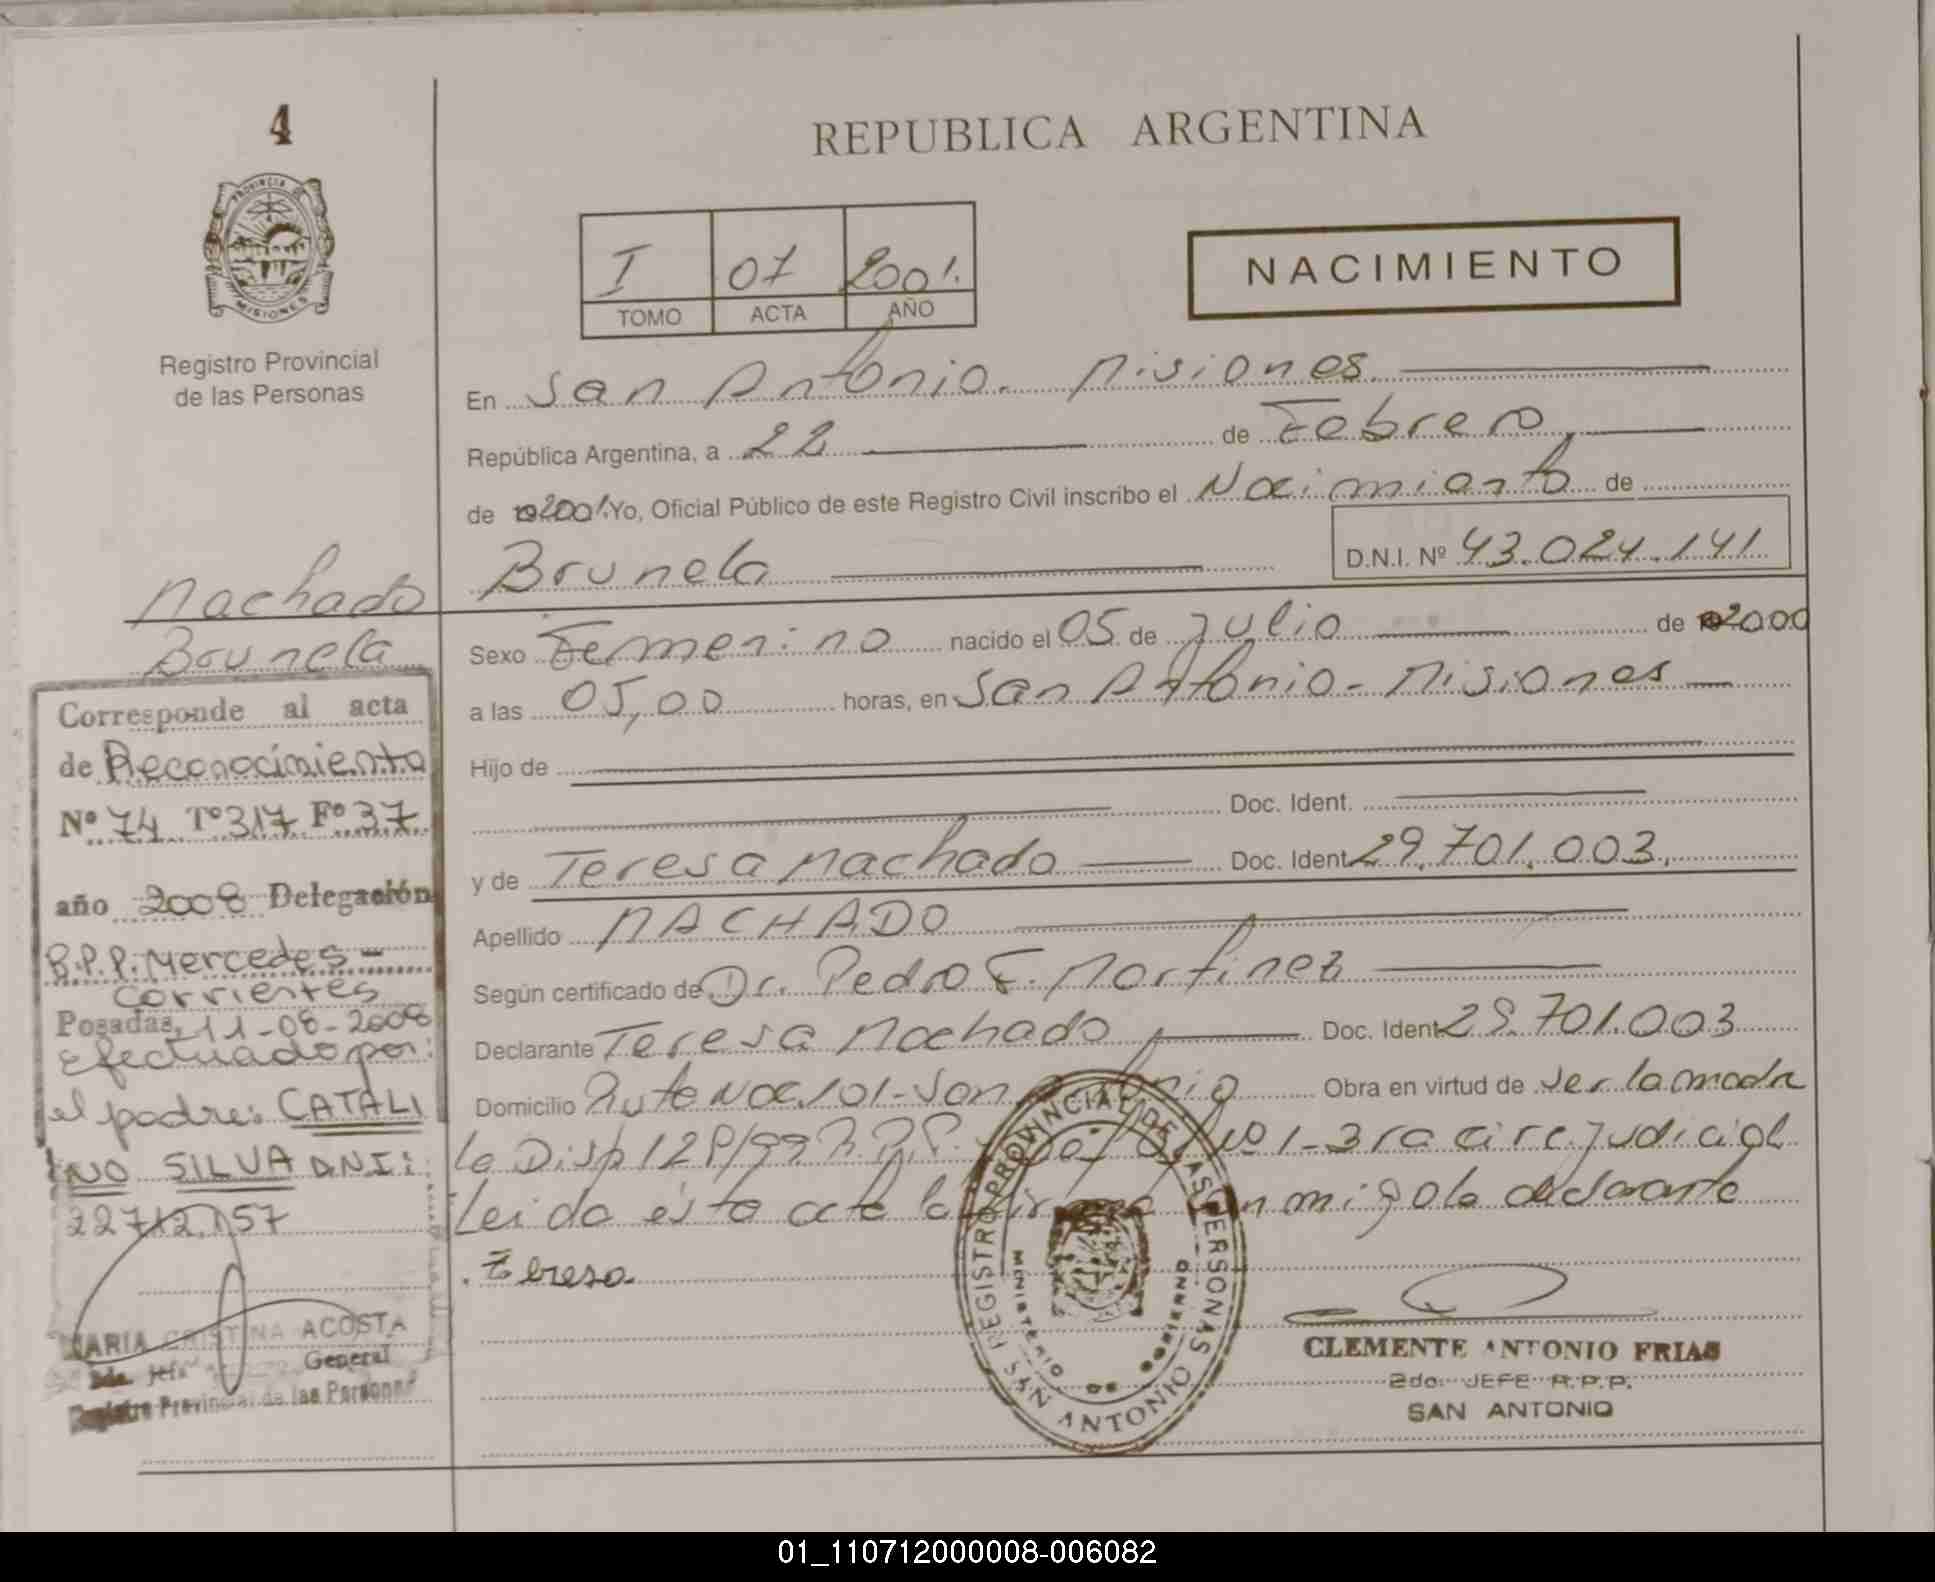 4
REPUBLICA ARGENTINA
PROVINCIA DE
MISIONES
Registro Provincial
de las Personas
I 07 2001.
TOMO ACTA AÑO
NACIMIENTO
En San Antonio. Misiones.
República Argentina, a 22 de Febrero
de 2001. Yo, Oficial Público de este Registro Civil inscribo el Nacimiento de
Brunela D.N.I. Nº 43.024.141
Sexo Femenino nacido el 05 de Julio de 2000
a las 05,00 horas, en San Antonio - Misiones
Hijo de
Doc. Ident.
y de Teresa Machado Doc. Ident. 29.701.003.
Apellido MACHADO
Según certificado de Dr. Pedro F. Martinez
Declarante Teresa Machado Doc. Ident. 29.701.003
Domicilio Ruta Nac. 101 - San Antonio Obra en virtud de ser la madre
la Disp 128/99 R.P.P. 1 - 3ra circ. judicial
Leida ésta acta la firma con migo la declarante
Teresa
REGISTRO PROVINCIAL DE LAS PERSONAS
MINISTERIO DE GOBIERNO
SAN ANTONIO
CLEMENTE ANTONIO FRIAS
2do. JEFE R.P.P.
SAN ANTONIO
Machado
Brunela
Corresponde al acta
de Reconocimiento
Nº 74 Tº 317 Fº 37
año 2008 Delegación
R.P.P. Mercedes -
Corrientes
Posadas, 11-08-2008
Efectuado por:
el padre: CATALI
NO SILVA DNI:
22712157
MARIA CRISTINA ACOSTA
2da. Jefa General
Registro Provincial de las Personas
01_110712000008-006082